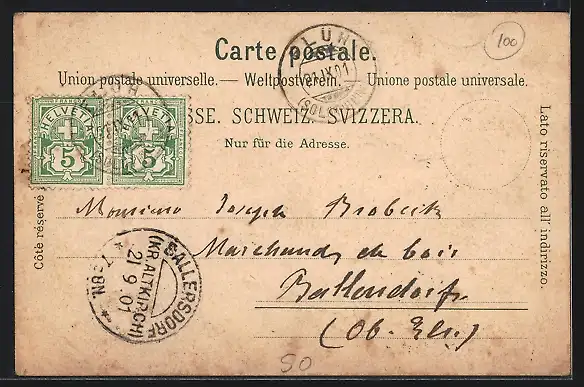 100
Carte postale.
Union postale universelle. — Weltpostverein. — Unione postale universale.
SSE. SCHWEIZ. SVIZZERA.
Nur für die Adresse.
HELVETIA HELVETIA
5 5
Côté réservé
Lato riservato all' indirizzo.
Monsieur Joseph Brobeck
Marchand de bois
Ballersdorf
(Ob. Els.)
BALLERSDORF
(KR. ALTKIRCH)
21.9.01
7-8N.
50